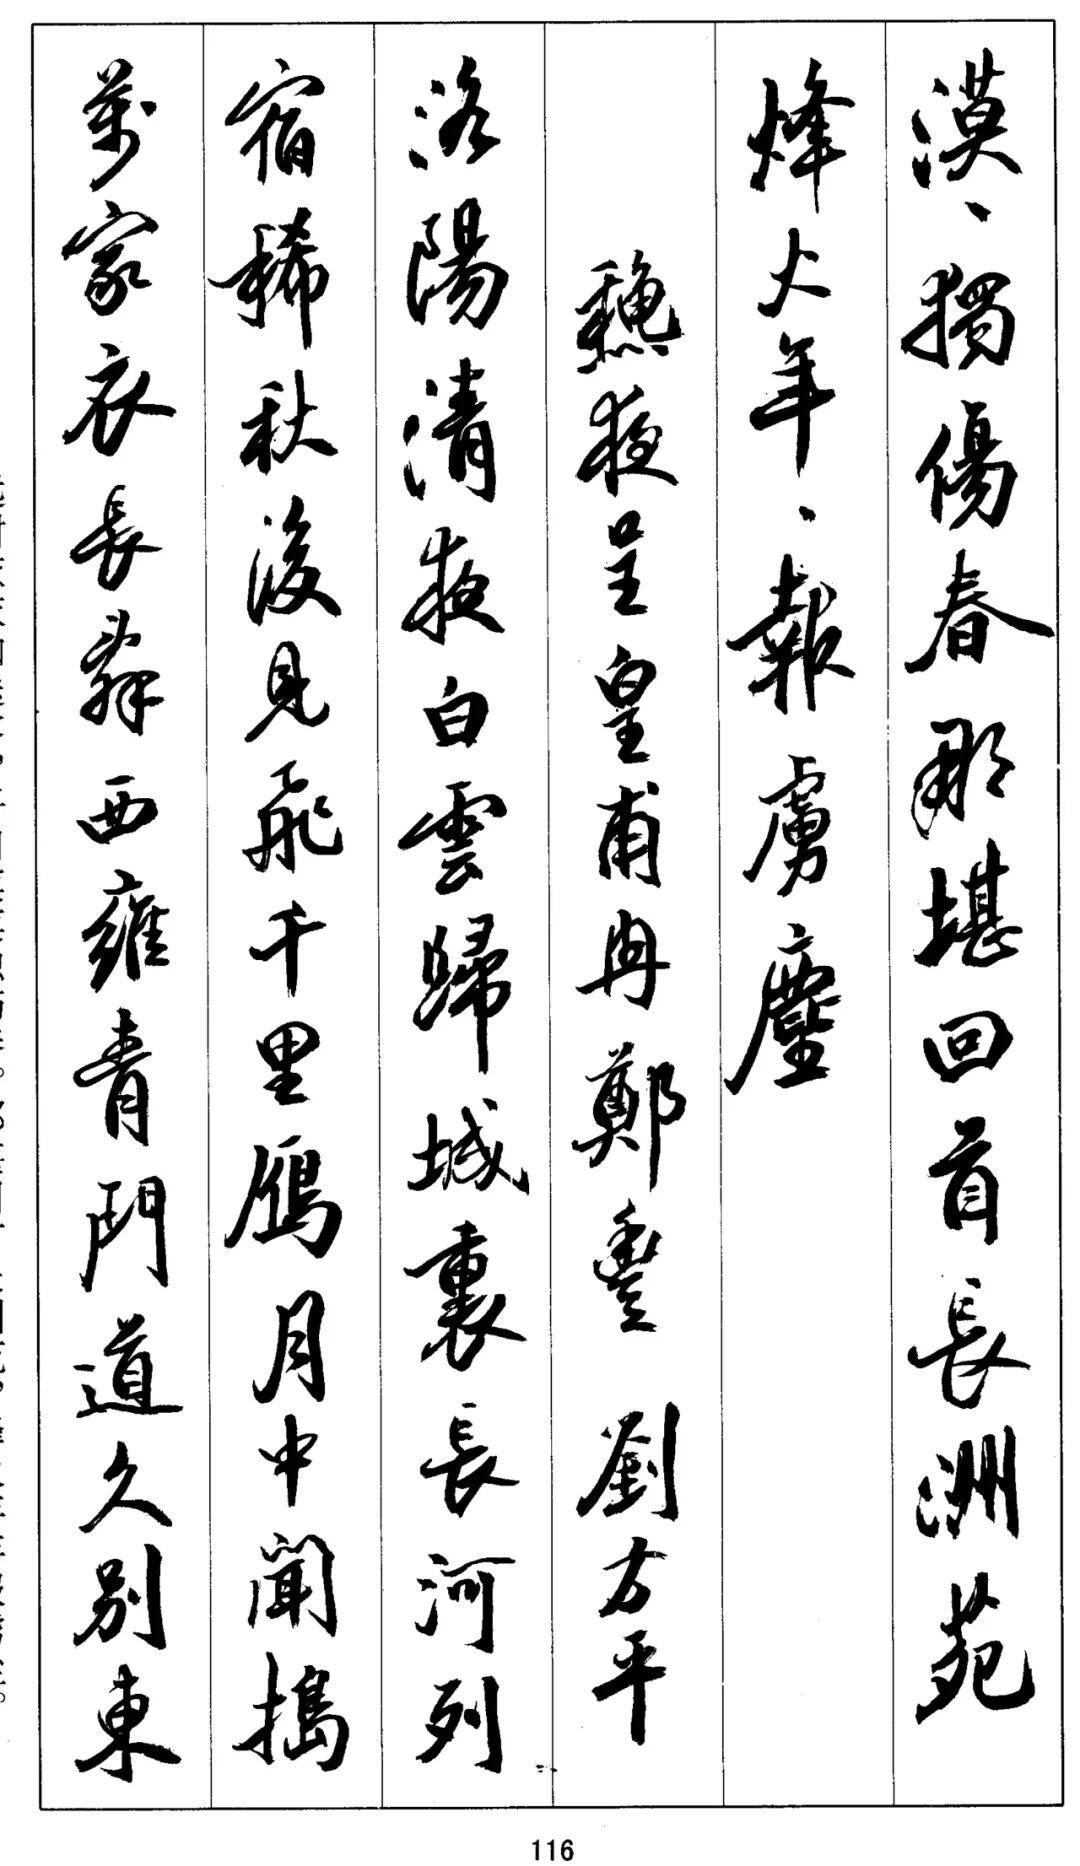 漠、獨傷春那堪回首長洲苑
烽火年、報虜塵
穐夜呈皇甫冉鄭豐 劉方平
洛陽清夜白雲歸城裏長河列
宿稀秋後見飛千里鴈月中聞搗
萬家衣長辭西雍青門道久別東
116